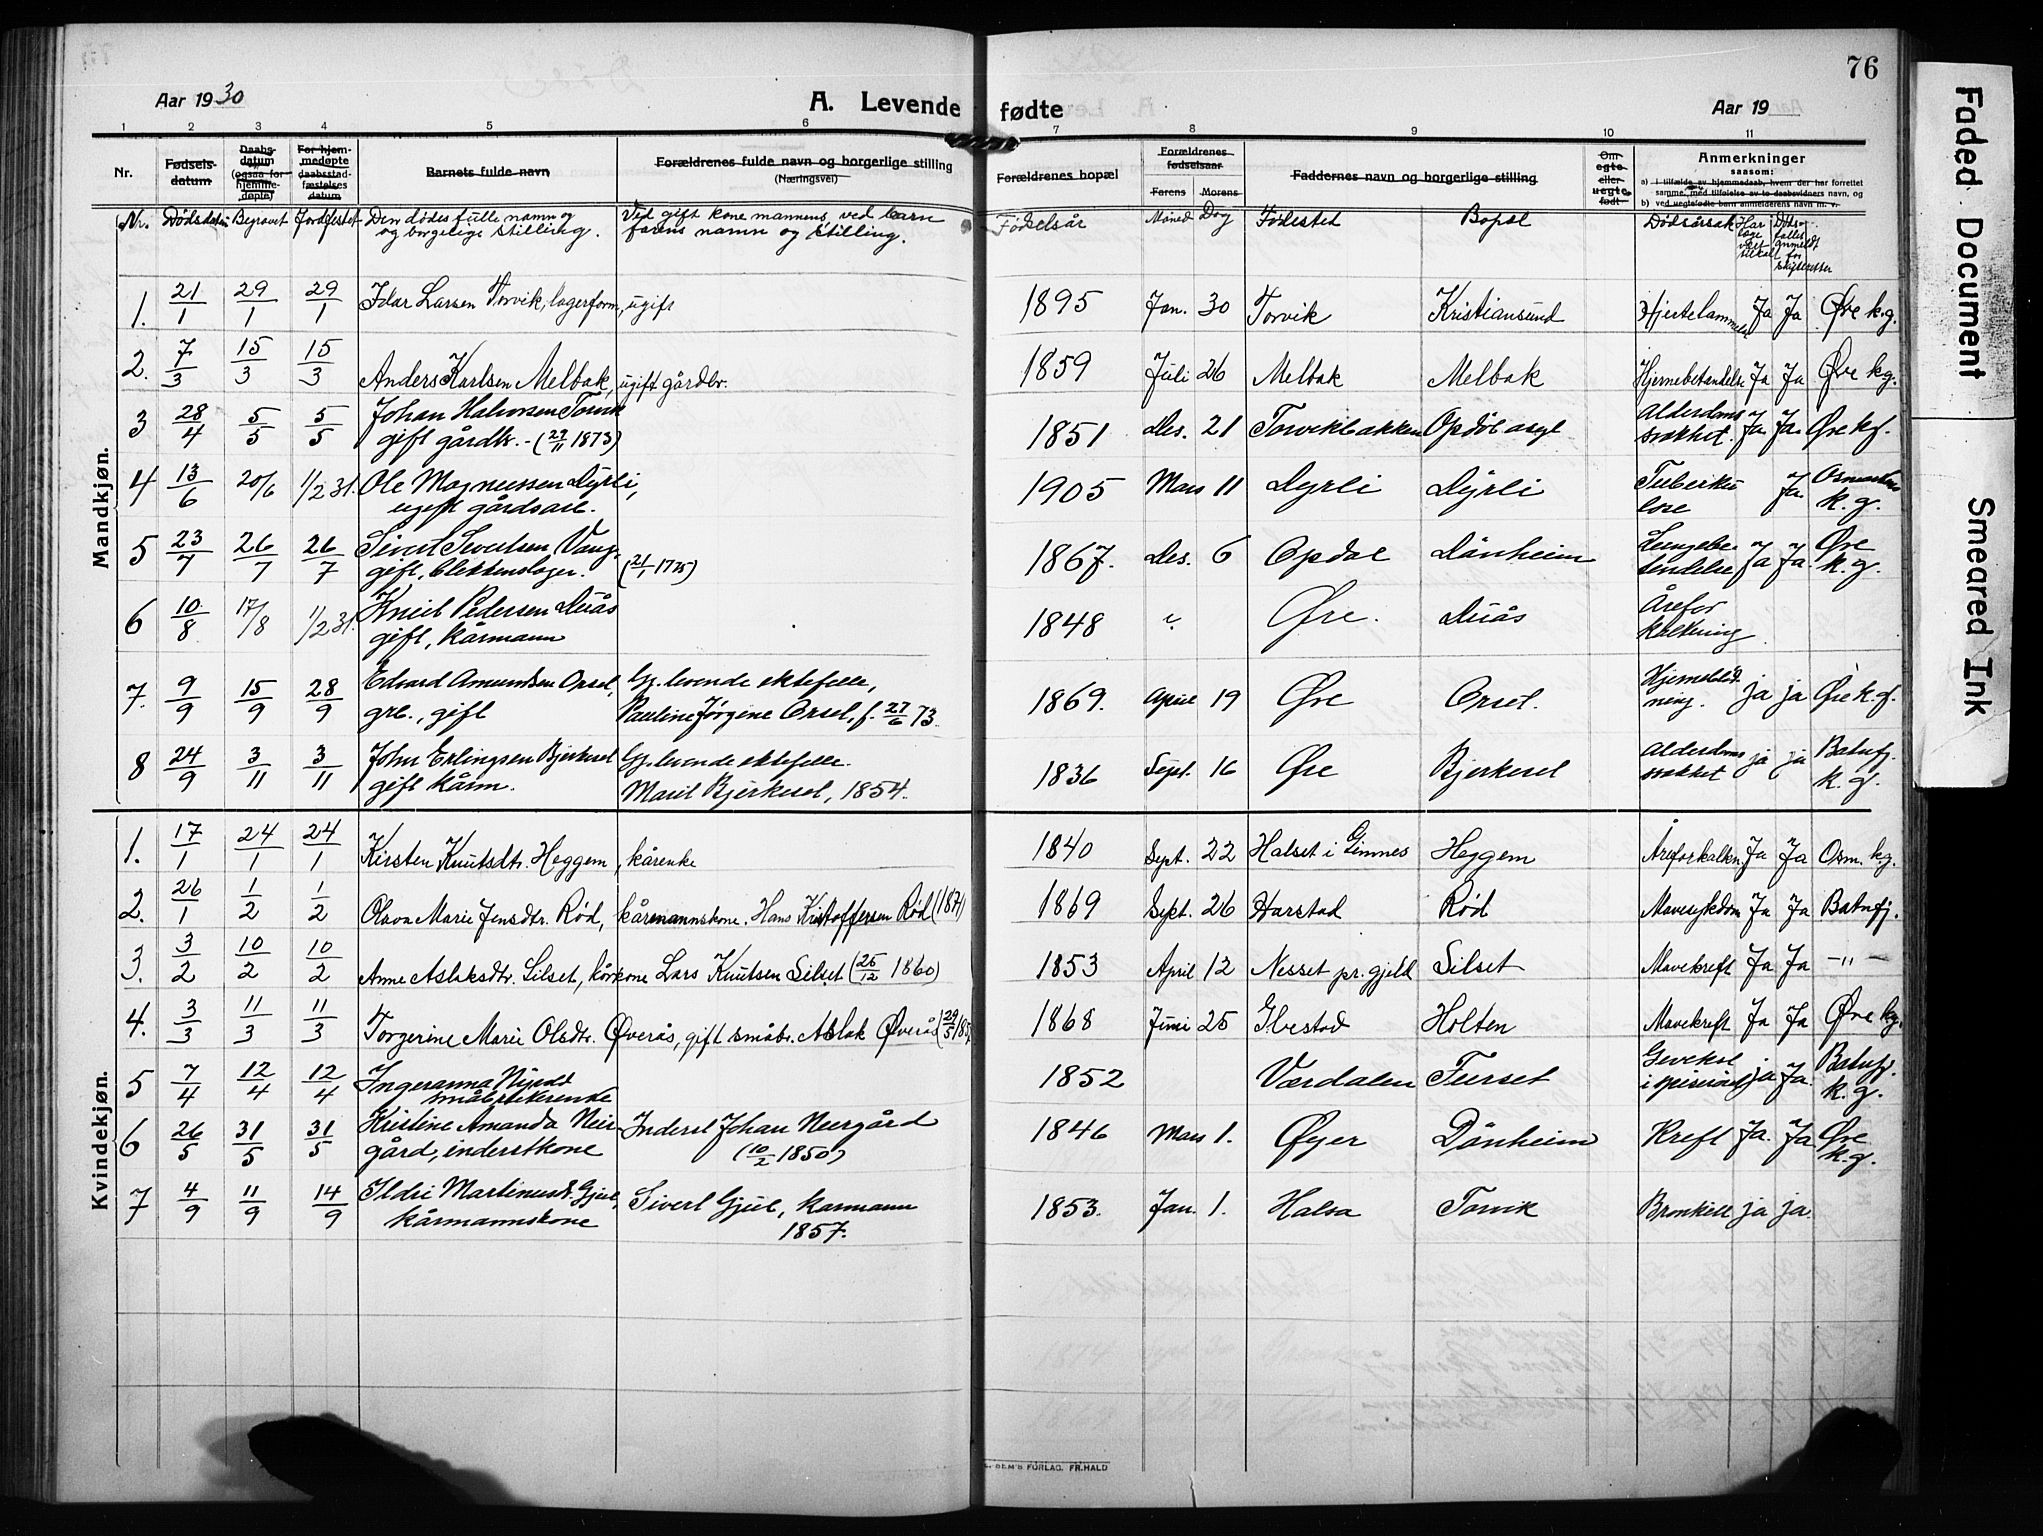 76
Aar 1930
A. Levende fødte
Aar 19
1 2 3 4 5 6 7 8 9 10 11
Nr. Fødsels-datum Daabs-datum (ogsaa for hjemme-døpte) For hjem-medøpte daabsstad-fæstelses datum Barnets fulde navn Forældrenes fulde navn og borgerlige stilling (Næringsvei) Forældrenes bopæl Forældrenes fødselsaar Farens Morens Faddernes navn og borgerlige stilling Om egte eller uegte født Anmerkninger saasom:
a) i tilfælde av hjemmedaab, hvem der har forrettet samme, med tilføielse av to daabsvidners navn, og
b) ved uegtefødte barn anmelderens navn m. v.
Nr. Dødsdato Begravet Jordfestet Den dødes fulle namn og og borgelige stilling. Ved gift kone mannens, ved barn farens namn og stilling. Fødselsår Måned Dag Fødested Bopel Dødsårsak Har læge vært tilkalt Dødsfallet anmeldt for skifteretten
Mandkjøn.
1. 21/1 29/1 29/1 Idar Larsen Torvik, lagerform, ugift 1895 Jan. 30 Torvik Kristiansund Hjertelammelse Ja Ja Øre k.g.
2. 7/3 15/3 15/3 Anders Karlsen Melbak, ugift gårdbr. 1859 Juli 26 Melbak Melbak Hjernebetendelse Ja Ja Øre kg.
3 28/4 5/5 5/5 Johan Halvorsen Torvik gift gårdbr. - (29/11 1873) 1851 Des. 21 Torvikbakken Opdøl asyl Alderdoms svakhet. Ja Ja. Øre kg.
4 13/6 20/6 1/2 31. Ole Magnussen Dyrli, ugift gårdsarb. 1905 Mars 11 Dyrli Dyrli Tuberkulose Ja. Osmarkens k. g.
5 23/7 26/7 26/7 Sivert Sivertsen Vaug, gift, blikkenslager. (21/1 1775) 1867. Des. 6 Opdal Dånheim Lungebetendelse Ja Ja. Øre k. g.
6 10/8 17/8 1/2 31. Knut Pedersen Duås gift, kårmann 1848 Øre. Duås Åreforkalkning
7. 9/9 15/9 28/9 Edvard Amundsen Orset, grb., gift Gj. levende ektefelle, Pauline Jørgine Orset, f. 27/6 73. 1869. April 19 Øre Orset. Hjerneblødning. ja ja Øre k.g.
8 24/9 3/11 3/11 John Erlingsen Bjerkeset gift kårm. Gj. levende ektefelle. Marit Bjerkeset, 1854. 1836 Sept. 16 Øre Bjerkeset Alderdoms svakhet ja ja Batnfj. k. g.
Kvindekjøn.
1. 17/1 24/1 24/1 Kirsten Knutsdtr. Heggem, kårenke 1840 Sept. 22 Halset i Gimnes Heggem Åreforkalkn. Ja Ja Osm. k.g.
2. 26/1 1/2 1/2 Olava Marie Jensdtr. Rød, kårmannskone. Hans Kristoffersen Rød (1871) 1869 Sept. 26 Harstad Rød Mavesykdom Ja Ja Batnfj.
3. 3/2 10/2 10/2 Anne Aslaksdtr. Silset, kårkone Lars Knutsen Silset (25/12 1860) 1853 April 12 Nesset pr.gjeld Silset Mavekreft Ja Ja -"-
4. 3/3 11/3 11/3 Torgerine Marie Olsdtr. Øverås, gift småbr. Aslak Øverås 1868 Juni 25 Ibestad Holten Mavekreft Ja Ja Øre kg.
5 7/4 12/4 12/4 Ingeranna 1852 Værdalen Furset i spiserøret ja Ja. Batnfj. k. g.
6 26/5 31/5 31/5 Kristine Amanda Neergård, inderstkone Inderst Johan Neergård (10/2 1850) 1846 Mars 1. Øyer Dånheim Kreft Ja. Ja Øre k.g.
7 4/9 11/9 14/9 Ildri Martinusd. Gjul, kårmannskone Sivert Gjul, karmann 1857. 1853. Jan. 1. Halsa Torvik Bronkitt ja ja.
SEM'S FORLAG. FR. HALD
Faded Document
Smeared Ink